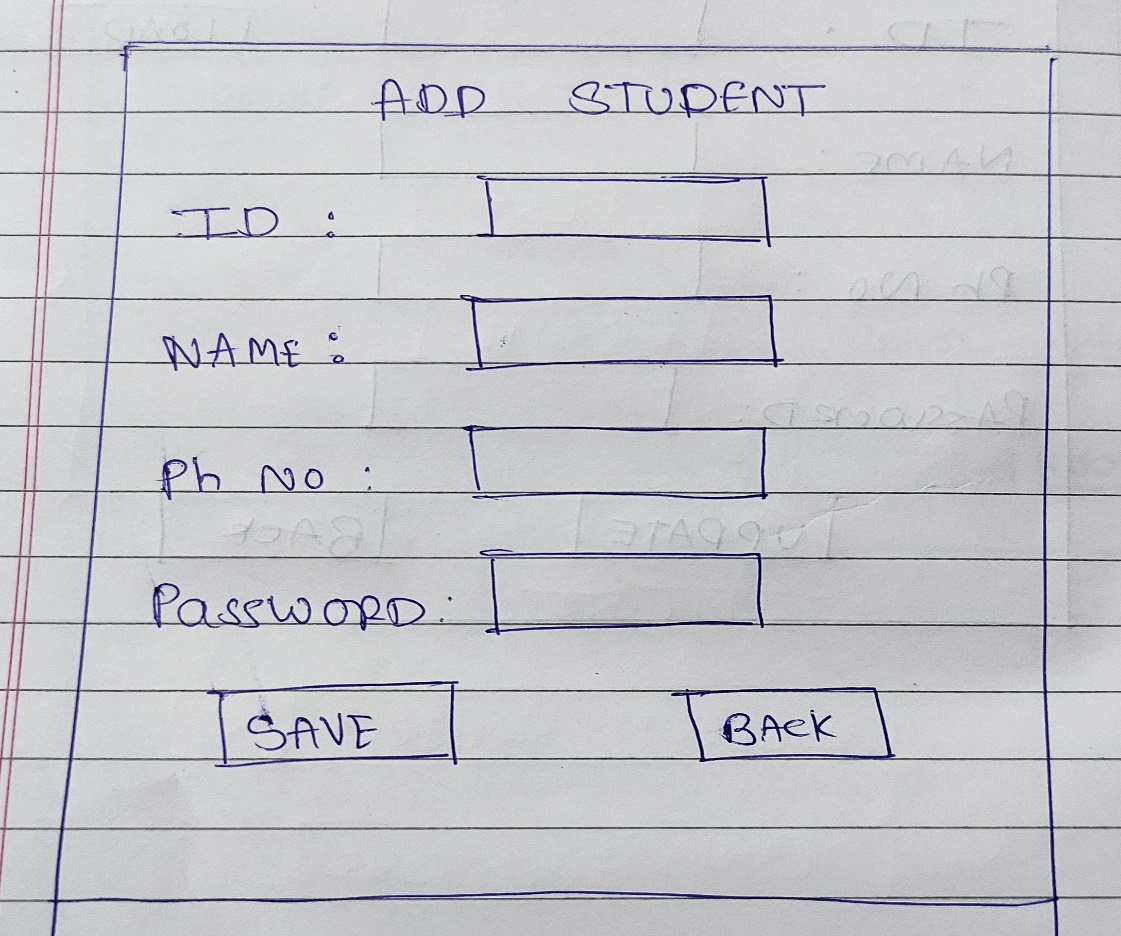 ADD STUDENT
ID :
NAME :
Ph No :
PassWORD :
SAVE BACK